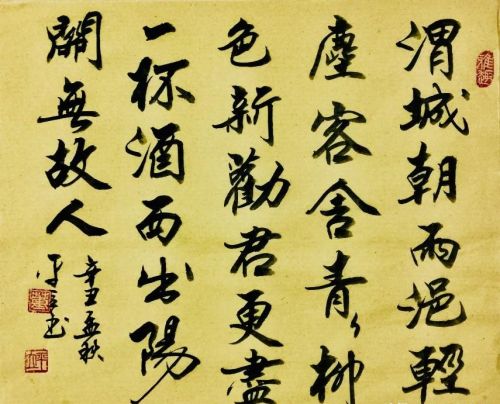 渭城朝雨浥輕
塵客舍青々柳
色新勸君更盡
一杯酒西出陽
關無故人
辛丑孟秋
书